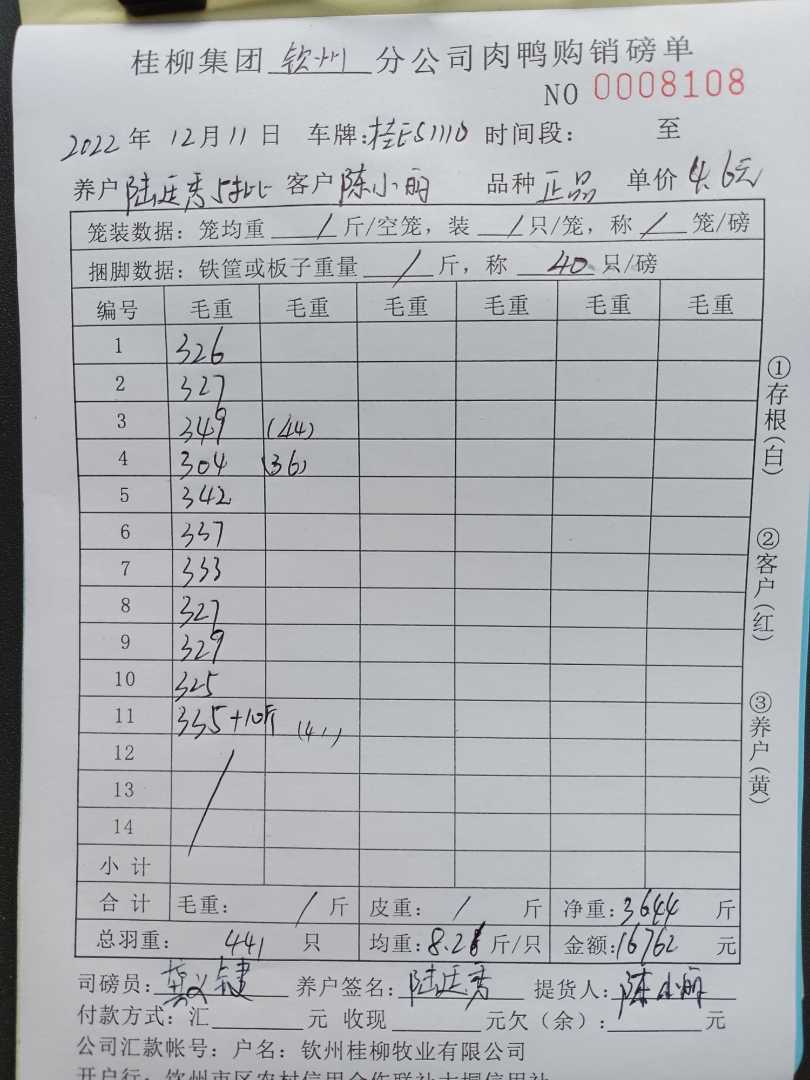 桂柳集团 钦州 分公司肉鸭购销磅单
NO 0008108
2022 年 12 月 11 日 车牌: 时间段: 至
养户 陆廷秀 5批 客户 陈小丽 品种 正品 单价 4.6元
笼装数据: 笼均重 / 斤/空笼, 装 / 只/笼, 称 / 笼/磅
捆脚数据: 铁筐或板子重量 / 斤, 称 40 只/磅
编号 毛重 毛重 毛重 毛重 毛重 毛重
1 326
2 327
3 349 (44)
4 304 (36)
5 342
6 337
7 333
8 327
9 329
10 325
11 335+10斤 (41)
12
13
14
小计
合计 毛重: / 斤 皮重: / 斤 净重: 3644 斤
总羽重: 441 只 均重: 8.26 斤/只 金额: 16762 元
司磅员: 养户签名: 陆廷秀 提货人: 陈小丽
付款方式: 汇 元 收现 元欠(余): 元
公司汇款帐号: 户名: 钦州桂柳牧业有限公司
开户行: 钦州市区农村信用合作联社大垌信用社
①存根(白)
②客户(红)
③养户(黄)